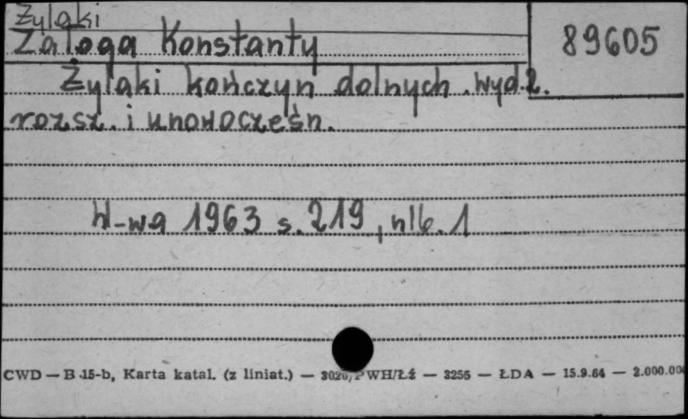 Żylaki
Załoga Konstanty
89605
Żylaki kończyn dolnych. Wyd.2.
rozsz. i unowocześn.
W-wa 1963 s. 219, nlb. 1
CWD — B 15-b, Karta katal. (z liniat.) — PWH/Łź — 3255 — ŁDA — 15.9.64 — 2.000.00